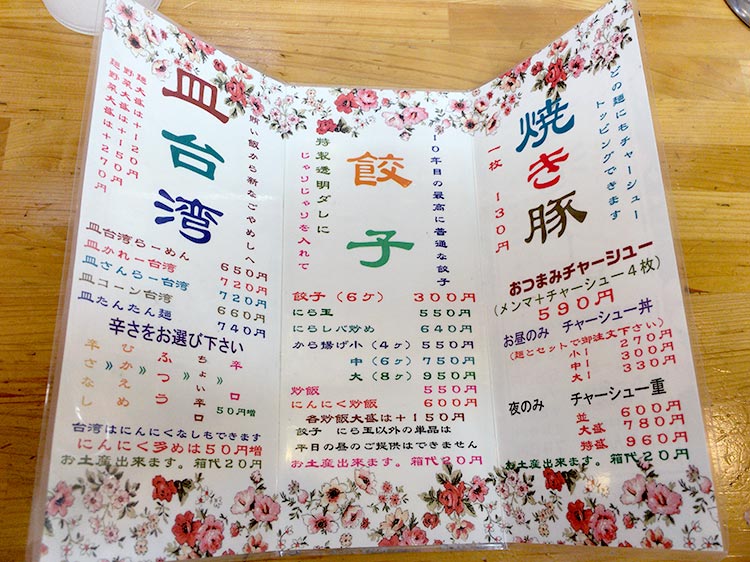 皿台湾
賄い飯から新なごやめしへ
麺大盛は+120円
野菜大盛は+150円
麺野菜大盛は+270円
皿台湾らーめん 650円
皿かれー台湾 720円
皿さんらー台湾 720円
皿コーン台湾 660円
皿たんたん麺 740円
辛さをお選び下さい
辛さなし 》 むかえめ 》 ふつう 》 ちょい辛口 》 辛口
50円増
台湾はにんにくなしもできます
にんにく多めは50円増
お土産出来ます。箱代20円
餃子
0年目の最高に普通な餃子
特製透明ダレに
じゃりじゃりを入れて
餃子(6ヶ) 300円
にら玉 550円
にらレバ炒め 640円
から揚げ小(4ヶ) 550円
中(6ヶ) 750円
大(8ヶ) 950円
炒飯 550円
にんにく炒飯 600円
各炒飯大盛は+150円
餃子 にら玉以外の単品は
平日の昼のご提供はできません
お土産出来ます。箱代20円
焼き豚
一枚 130円
どの麺にもチャーシュー
トッピングできます
おつまみチャーシュー
(メンマ+チャーシュー4枚)
590円
お昼のみ チャーシュー丼
(麺とセットで御注文下さい)
小ー 270円
中ー 300円
大ー 330円
夜のみ チャーシュー重
並 600円
大盛 780円
特盛 960円
お土産出来ます。箱代20円